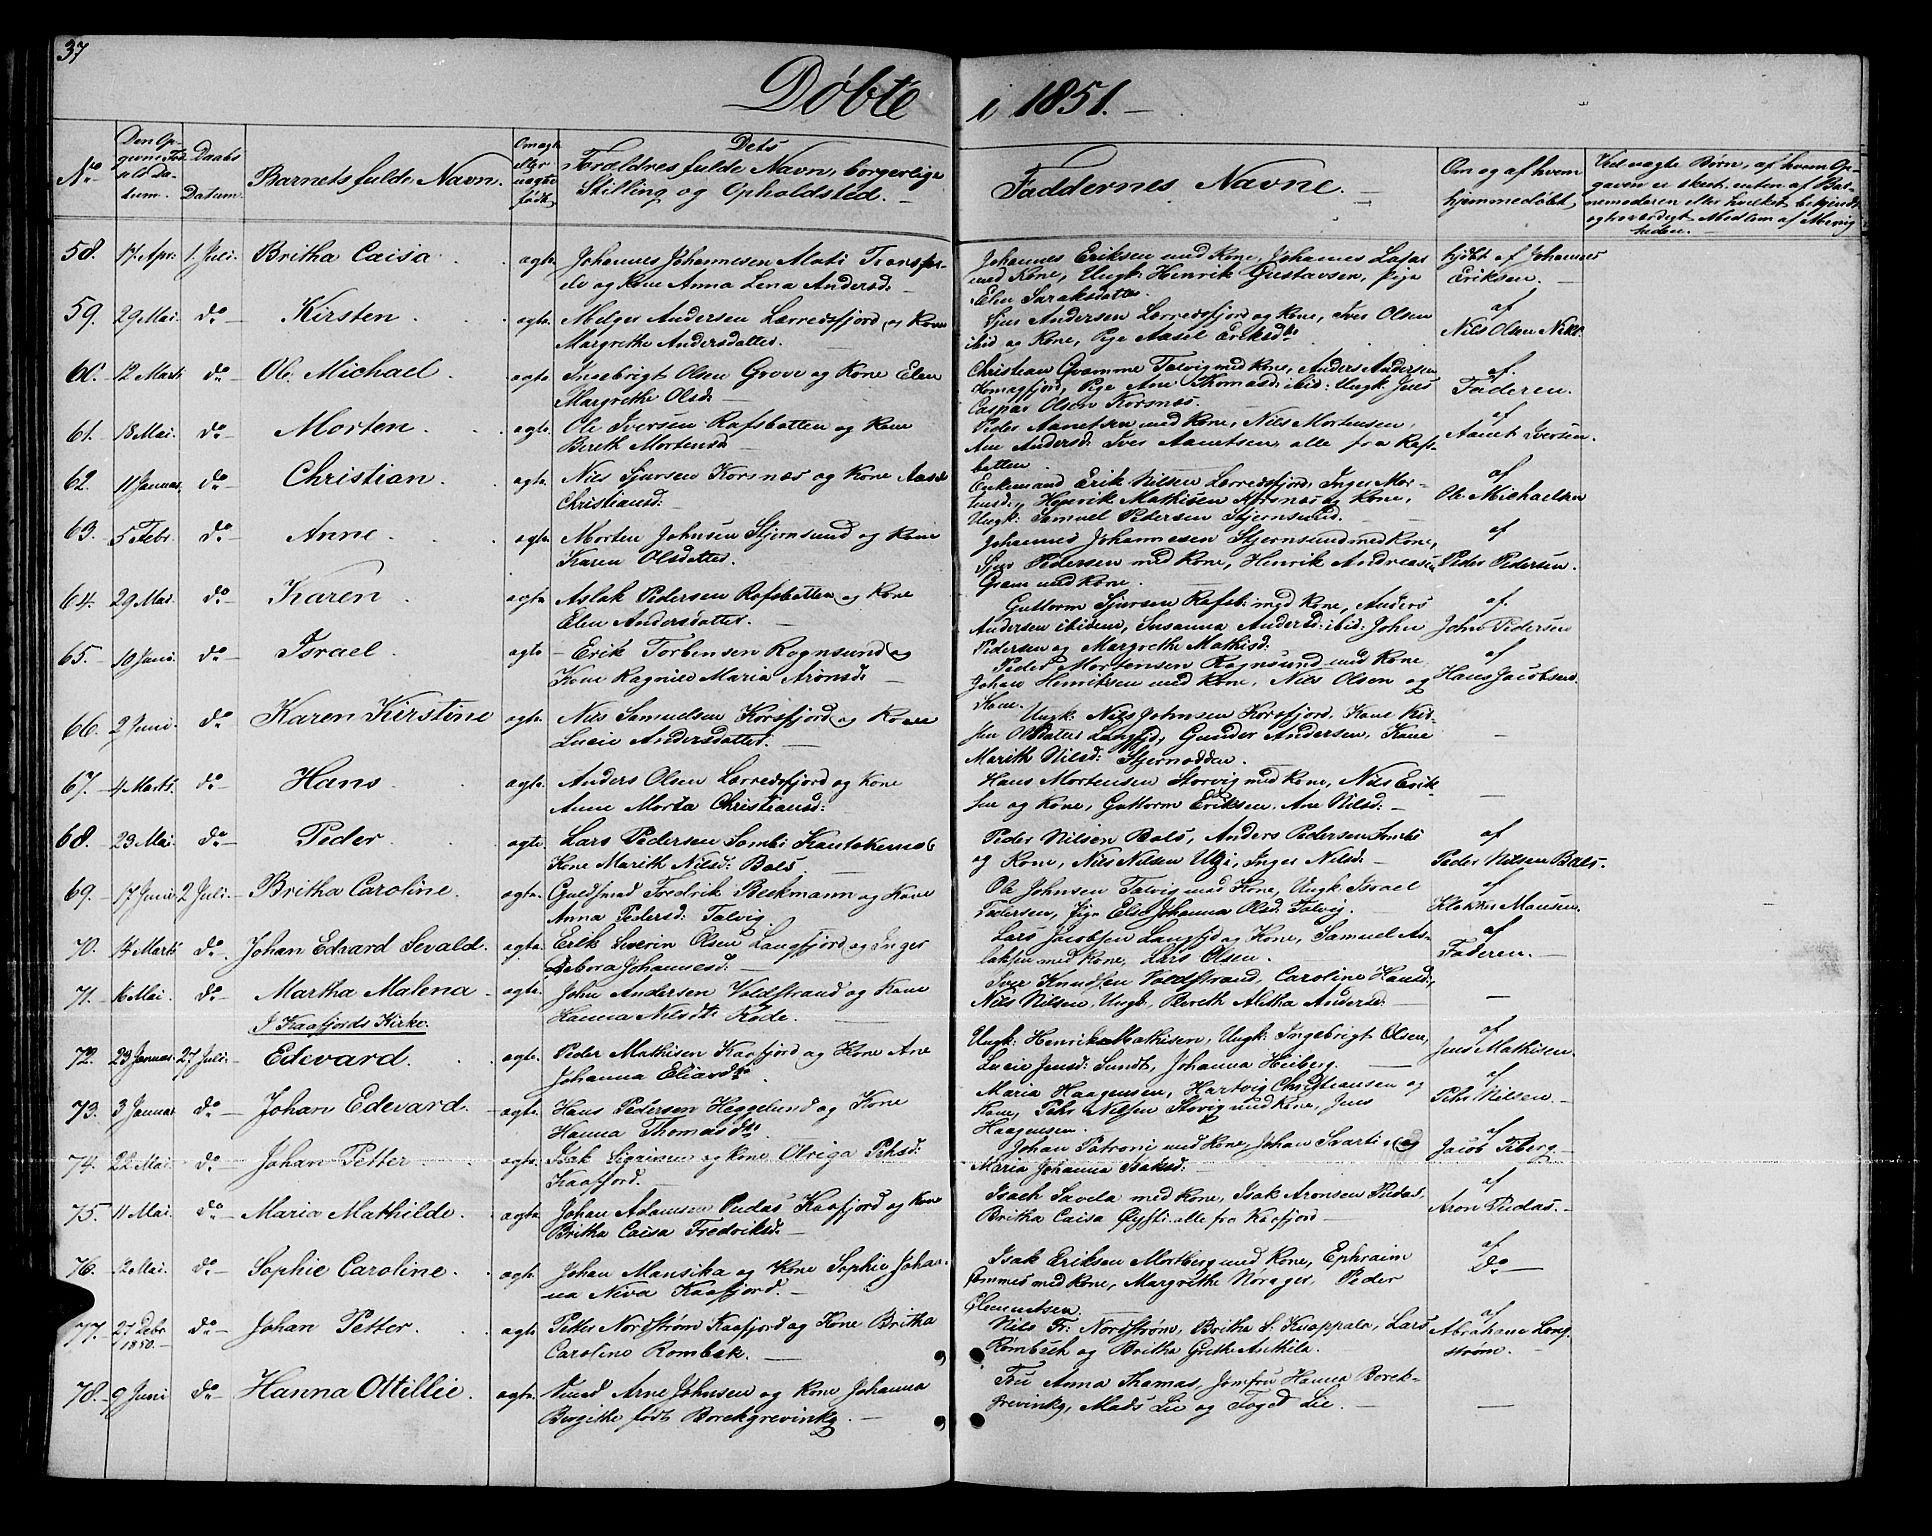 37
Døbte i 1851.
No. Den Opgivne Fødsels Datum. Daabs Datum. Barnets fulde Navn. Om ægte eller uægte født, Dets Forældres fulde Navn, borgerlige Stilling og Opholdsted. Faddernes Navne. Om og af hvem hjemmedøbt,
58. 17. Apr: 1. Juli. Britha Caisa. ægte. Johannes Johannesen Mati
og Kone Anna Lena Andersd:
Johannes Eriksen med Kone, Johannes
med Kone, Ungk: Henrik Gustavsen, Pige
Elen Isaksdatter.
hjdbt af Johannes
Eriksen.
59. 29 Mai. do Kirsten. ægte. Andersen Lerredsfjord og Kone
Margrethe Andersdatter.
Sjur Andersen Lerredsfjord og Kone, Iver Olsen
ibid og Kone, Pige Aasel Eriksdtr
af
Nils Olsen
60. 12 Marts do Ole Michael. ægte Ingebrigt Olsen Grove og Kone Elen
Margrethe Olsd:
Christian Gramme Talvig med Kone, Anders Andersen
Komagfjord, Pige Ane Thomasd: ibid: Ungk: Jens
Caspar Olsen Korsnæs.
af
Faderen.
61. 18 Mai. do Morten. ægte. Ole Iversen Rafsbotten og Kone
Bereth Mortensd
Peder Aamtsen med Kone, Nils Mortensen,
Ane Andersd: Iver Aamtsen, alle fra Rafsbotten.
af
Aamt Iversen.
62. 11 Januar. do Christian. ægte. Nils Sjursen Korsnæs og Kone
Christiansd:
Enkemand Erik Nilsen Lerredsfjord, Inger Mortensd:, Henrik Mathisen Korsnæs og Kone,
Ungk: Samuel Pedersen Stjernsund.
af
Ole Michaelsen
63. 5 Febr. do Anne. ægte. Morten Johnsen Stjernsund og Kone
Karen Olsdatter.
Johannes Johannesen Stjernsund med Kone,
Sjur Pedersen med Kone, Henrik Andreasen
Gram med Kone.
af
Peder Pedersen.
64. 29 Mai. do Karen. ægte Aslak Pedersen Rafsbotten og Kone
Elen Andersdatter.
Guttorm Sjursen Rafsb: med Kone, Anders
Andersen ibidem, Susanna Andersd: ibid: John
Pedersen og Margrethe Mathisd:
af.
John Pedersen
65. 10 Juni. do Israel. ægte Erik Torbensen Rognsund og
Kone Ragnild Maria Aronsd:
Peder Mortensen Rognsund med Kone,
Johan Henriksen med Kone, Nils Olsen og
Kone.
af
Hans Jacobsen.
66. 2 Juni. do Karen Kirstine ægte. Nils Samuelsen Korsfjord og Kone
Lucie Andersdatter.
Ungk: Nils Johnsen Korsfjord, Kone Kirsten Olsdatter Langfjd, Gunder Andersen, Kone
Marith Nilsd: Stjernodden.
67. 4 Marts. do Hans. ægte. Anders Olsen Lerredsfjord og Kone
Anne Morta Christiansd:
Hans Mortensen Storvig med Kone, Nils Eriksen og Kone, Guttorm Eriksen, Ane Nilsd:
68. 23 Mai. do Peder. ægte. Lars Pedersen Sombi Kautokeino &
Kone Marith Nilsd: Bals
Peder Nilsen Bals, Anders Pedersen Sombi
og Kone, Nils Nilsen Utzi, Inger Nilsd:
af
Peder Nilsen Bals.
69. 17 Juni 2 Juli. Britha Caroline. ægte. Fredrik Beckmann og Kone
Anna Pedersd: Talvig.
Ole Johnsen Talvig med Kone, Ungk: Israel
Pedersen, Pige Else Johanna Olsd: Talvig.
af
Klokker Mausen.
70. 14 Marts do Johan Edvard Sevald. ægte. Erik Severin Olsen Langfjord og Inger
Debora Johannesd:
Lars Jacobsen Langfjd og Kone, Samuel Aslaksen med Kone, Lars Olsen.
af
Faderen.
71. 16 Mai. do Martha Malena ægte. John Andersen Voldstrand og Kone
Hanna Nilsdtr Kode.
Iver Knudsen Voldstrand, Caroline Hansd:,
Nils Nilsen, Ungk, Bereth Alitha Andersd:
I Kaafjords Kirke.
72. 23 Januar. 27 Juli. Edevard. ægte. Peder Mathisen Kaafjord og Kone Ane
Johanna Eliasdtr.
Ungk: Henrik Mathisen, Ungk: Ingebrigt Olsen,
Lucie Jensd: Sundt, Johanna Heiberg.
af
Jens Mathisen.
73. 3 Januar do Johan Edevard. ægte. Hans Pedersen Heggelund og Kone
Hanna Thomasdtr.
Maria Haagensen, Hartvig Christiansen og
Kone, Peter Nilsen Storvig med Kone, Jens
Haagensen.
af
Peter Nilsen.
74. 22 Mai. do Johan Petter. ægte. Isak og Kone Pehsd:
Kaafjord.
Johan Patroni med Kone, Johan Svarti og
Maria Johanna Isaksd:
af
Jacob Friberg.
75. 11 Mai. do Maria Mathilde. ægte. Johan Adamsen Pudas Kaafjord og Kone
Britha Caisa Fredriksd:
Isach Savela med Kone, Isak Aronsen Pudas,
Britha Caisa alle fra Kaafjord
af
Aron Pudas.
76. 2 Mai. do Sophie Caroline. ægte. Johan Mansika og Kone Sophie Johanna Niva Kaafjord.
Isak Eriksen Mortberg med Kone, Ephraim
med Kone, Margrethe Norager, Peder
Clemmetsen.
af
Do
77. 27 Debr 1850. do Johan Petter. ægte Petter Nordstrøm Kaafjord og Kone Britha
Caroline Rombak.
Nils Fr: Nordstrøm, Britha S. Knappala, Lars
Rombæk og Britha Greth Anthila.
af
Abraham Longstrøm.
78. 9 Juni do Hanna Ottillie. ægte. Smed Arne Johnsen og Kone Johanna
Bergithe født Borchgrevinkg.
Fru Anna Thomas, Jomfru Hanna Borchgrevinkg, Mads Lie og Foged Lie.